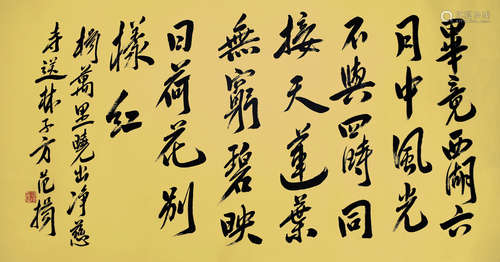 畢竟西湖六
月中風光
不與四時同
接天蓮葉
無窮碧映
日荷花別
樣紅
楊萬里曉出净慈
寺送林子方范揚